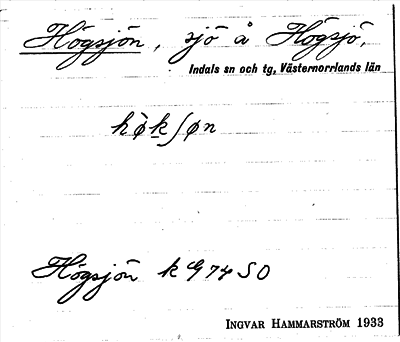 Högsjön, sjö å Högsjö,
Indals sn och tg, Västernorrlands län
hø̀kʃøn
Högsjön k G 74 SO
INGVAR HAMMARSTRÖM 1933